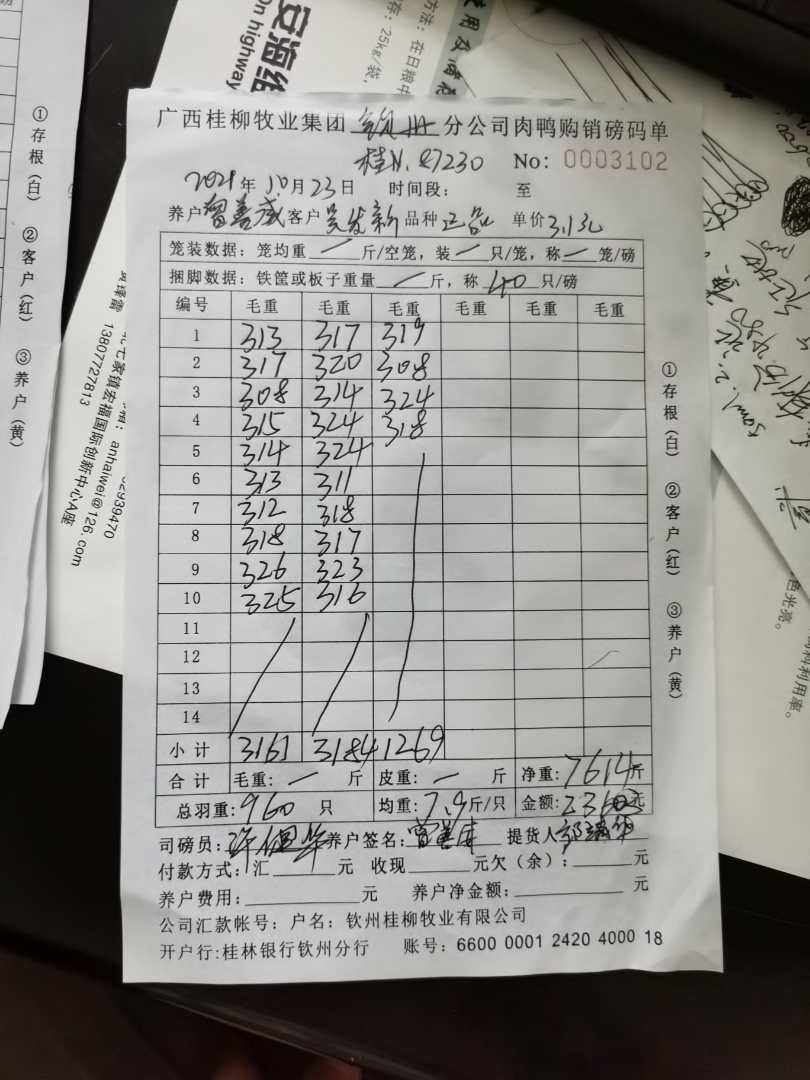 广西桂柳牧业集团 钦州 分公司肉鸭购销磅码单
桂N. 87230 No: 0003102
2021年10月23日 时间段: 至
养户 曾善成 客户 吴发新 品种 正品 单价3.1元
笼装数据: 笼均重 / 斤/空笼, 装 / 只/笼, 称 / 笼/磅
捆脚数据: 铁筐或板子重量 / 斤, 称 40 只/磅
编号 毛重 毛重 毛重 毛重 毛重 毛重
1 313 317 319
2 317 320 308
3 308 314 324
4 315 324 318
5 314 324
6 313 311
7 312 318
8 318 317
9 326 323
10 325 316
11
12
13
14
小计 3161 3184 1269
合计 毛重: / 斤 皮重: / 斤 净重: 7614斤
总羽重: 960 只 均重: 7.9斤/只 金额: 元
司磅员: 养户签名: 提货人
付款方式: 汇 元 收现 元欠(余): 元
养户费用: 元 养户净金额: 元
公司汇款帐号: 户名: 钦州桂柳牧业有限公司
开户行:桂林银行钦州分行 账号: 6600 0001 2420 4000 18
①存根(白) ②客户(红) ③养户(黄)
①存根(白) ②客户(红) ③养户(黄)
on highway
方法: 在日粮中
存: 25kg/袋,
anhaiwei@126.com
七家镇宏福国际创新中心A座
13807727813
色光亮。
料利用率。